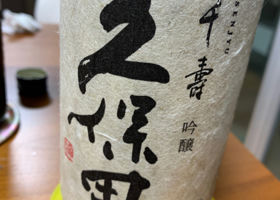 千壽
吟醸
久保田